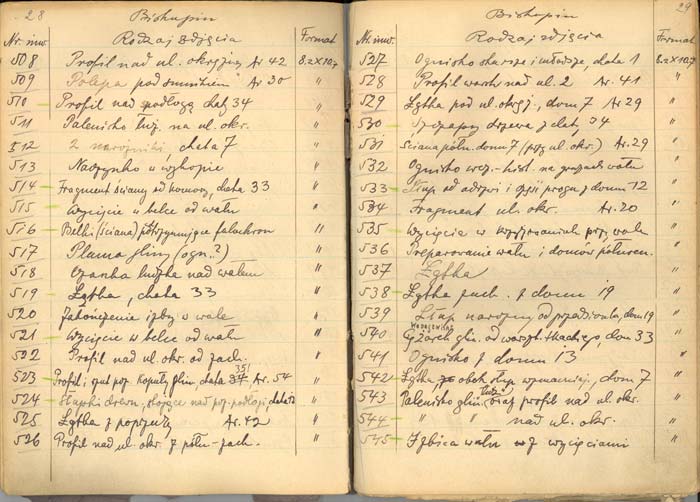 28 Biskupin
Nr. inw. Rodzaj zdjęcia Format
508 Profil nad ul. okrężną Ar 42 8,2×10,7
509 Polepa pod Ar 30 "
510 Profil nad podłogą chaty 34 "
511 Palenisko łuż. na ul. okr. "
512 2 narożniki chata 7 "
513 Naczynko w wykopie "
514 Fragment ściany od komory, chata 33 "
515 Wycięcie w belce od wału "
516 Belki (ściana) podtrzymujące falochron "
517 Plama gliny (ogn.?) "
518 Czaszka ludzka nad wałem "
519 Łątka, chata 33 "
520 Zakończenie izby w wale "
521 Wycięcie w belce od wału "
522 Profil nad ul. okr. od zach. "
523 Profil i kopuły glin. chata 34, 35! Ar. 54 "
524 Słupki drewn. nad poz. podłogi, chata 12 "
525 Łątka z poprzeczką Ar. 42 "
526 Profil nad ul. okr. z półn.-zach. "
29
Biskupin
Nr. inw. Rodzaj zdjęcia Format
527 Ognisko starsze i młodsze, chata 1 8,2×10,7
528 Profil warstw nad ul. 2 Ar. 41 "
529 Łątka pod ul. okręż., dom 7 Ar 29 "
530 Szczapy drzewa z chaty 34 "
531 Ściana półn. domu 7 (przy ul. okr.) Ar. 29 "
532 Ognisko wcz.-hist. na gruzach wału "
533 Słup od odrzwi i części progu z domu 12 "
534 Fragment ul. okr. Ar. 20 "
535 Wycięcie w przy wale "
536 Preparowanie wału i domów "
537 Łątka "
538 Łątka zach. z domu 19 "
539 Słup narożny od przedsionka, dom 19 "
540 Ciężarek glin. od warszt. tkackiego, dom 33 "
541 Ognisko z domu 13 "
542 Łątka obok słup. wzmacniaj., dom 7 "
543 Palenisko glin. łużyc. oraz profil nad ul. okr. "
544 " " nad ul. okr. "
545 Izbica wału z wycięciami "